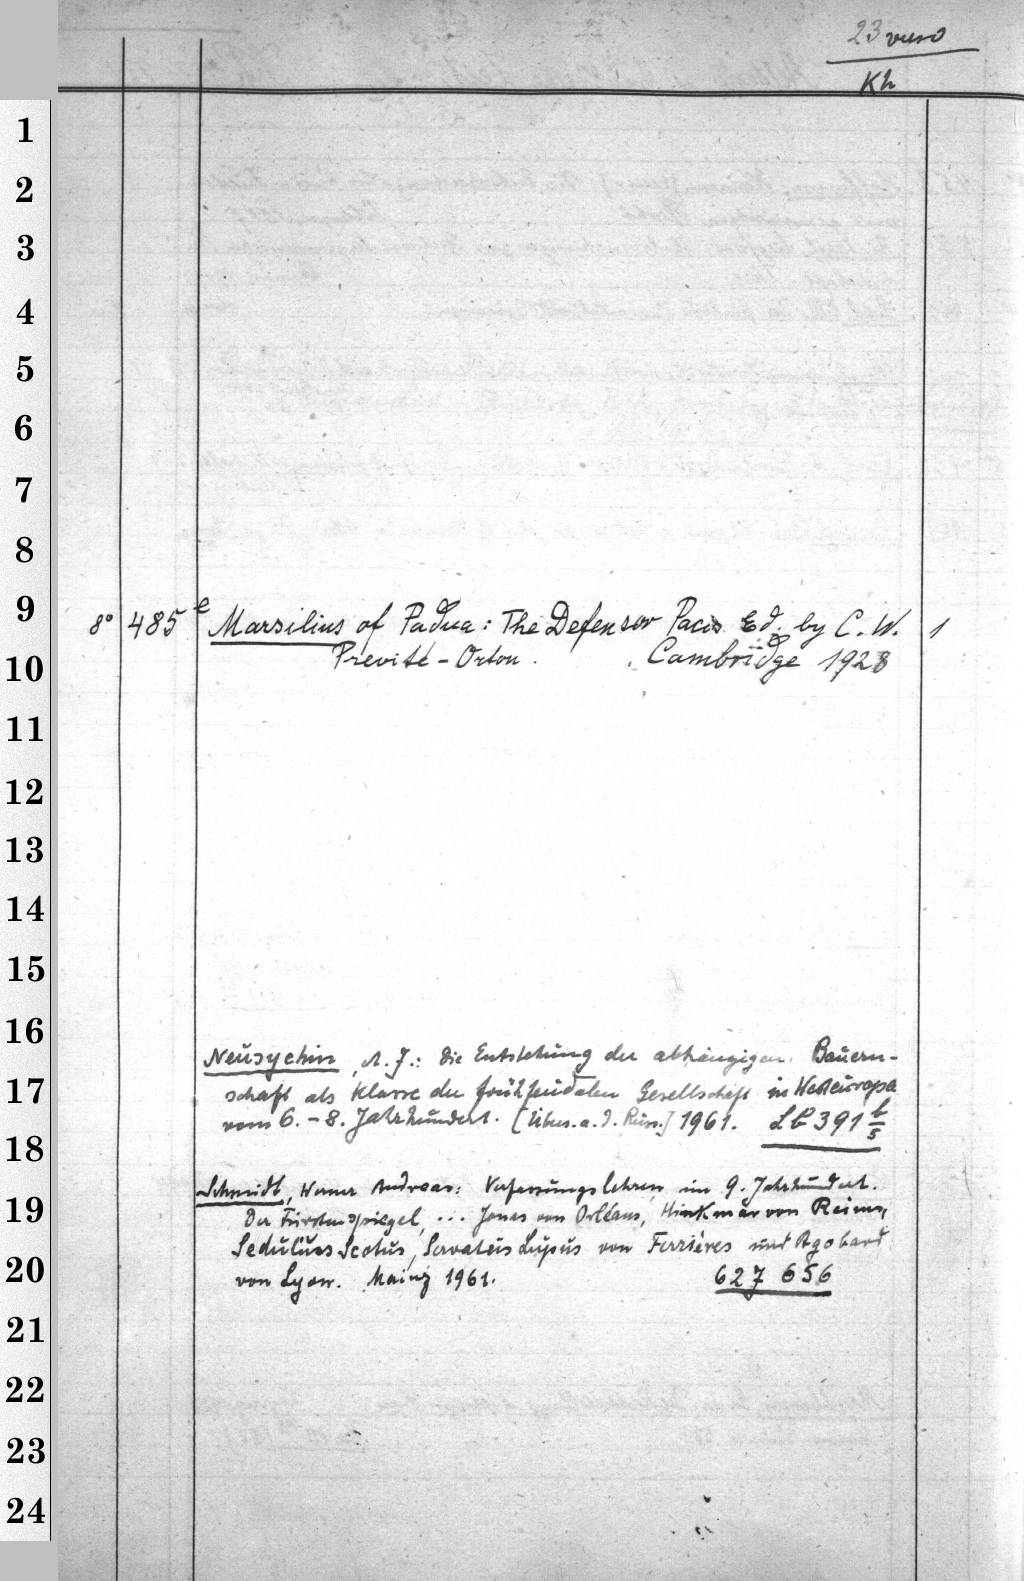 23 verso
Kh
1
2
3
4
5
6
7
8
9
8° 485 e Marsilius of Padua: The Defensor Pacis Ed. by C. W. 1
10
Previté-Orton. Cambridge 1928
11
12
13
14
15
16
Neusychin, A. J.: Die Entstehung der abhängigen Bauern-
17
schaft als Klasse der frühfeudalen Gesellschaft in Westeuropa
vom 6.-8. Jahrhundert. [Übers. a. d. Russ.] 1961. Lb 391 b/5
18
Schmidt, Werner Andreas: Verfassungslehren im 9. Jahrhundert.
19
Die Fürstenspiegel, ... Jonas von Orléans, Hinkmar von Reims,
Sedulius Scotus, Servatus Lupus von Ferrières und Agobard
20
von Lyon. Mainz 1961. 627 656
21
22
23
24